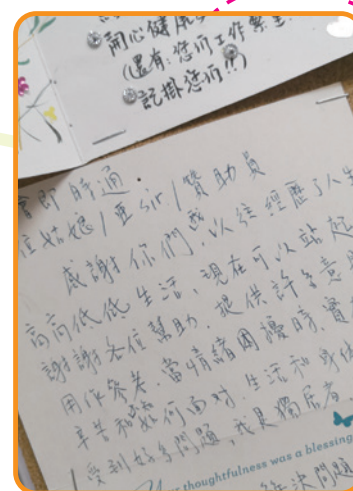 開心健康
(還有:您们工作繁重
記掛您们!!)
會即時通.
位姑娘/亜sir/贊助員
感謝你們,我以往經歷了人生
高高低低生活、現在可以站起
謝謝各位幫助,提供許多意見
用作參考.當情緒困擾時、實
辛苦和如何面对.生活和身体
受到好多問題,我是獨居者
thoughtfulness was a blessing
解決問題